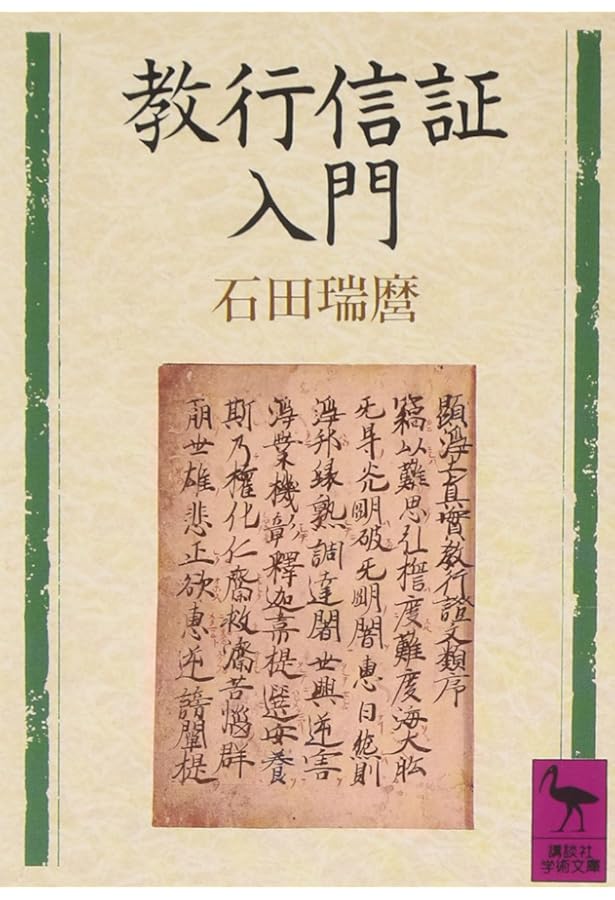 教行信証
入門
石田瑞麿
顕浄土真實教行證文類序
竊以難思弘擔度難度海大舩
无㝵光明破无明闇惠日然則
浄邦縁熟調達闍世興逆害
浄業機彰釋迦韋提選安養
斯乃權化仁齊救濟苦惱群
萠世雄悲正欲惠逆謗闡提
講談社
学術文庫